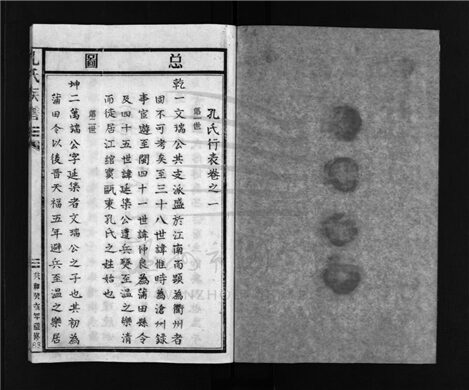 總圖
孔氏行表卷之一
第一世
乾一文瑞公共支派盛於江南而顯為衢州者
固不可考矣至三十八世諱惟時為滄州錄
事宦遊至閩四十一世諱仲良為莆田縣令
及四十五世諱延集公遭兵變至溫之樂清
而徙居江綰實甌東孔氏之始也
第二世
坤二萬端公字延集者文瑞公之子也其初為
莆田令以後晉天福五年避兵至溫之樂居
孔氏族譜
共和癸亥年